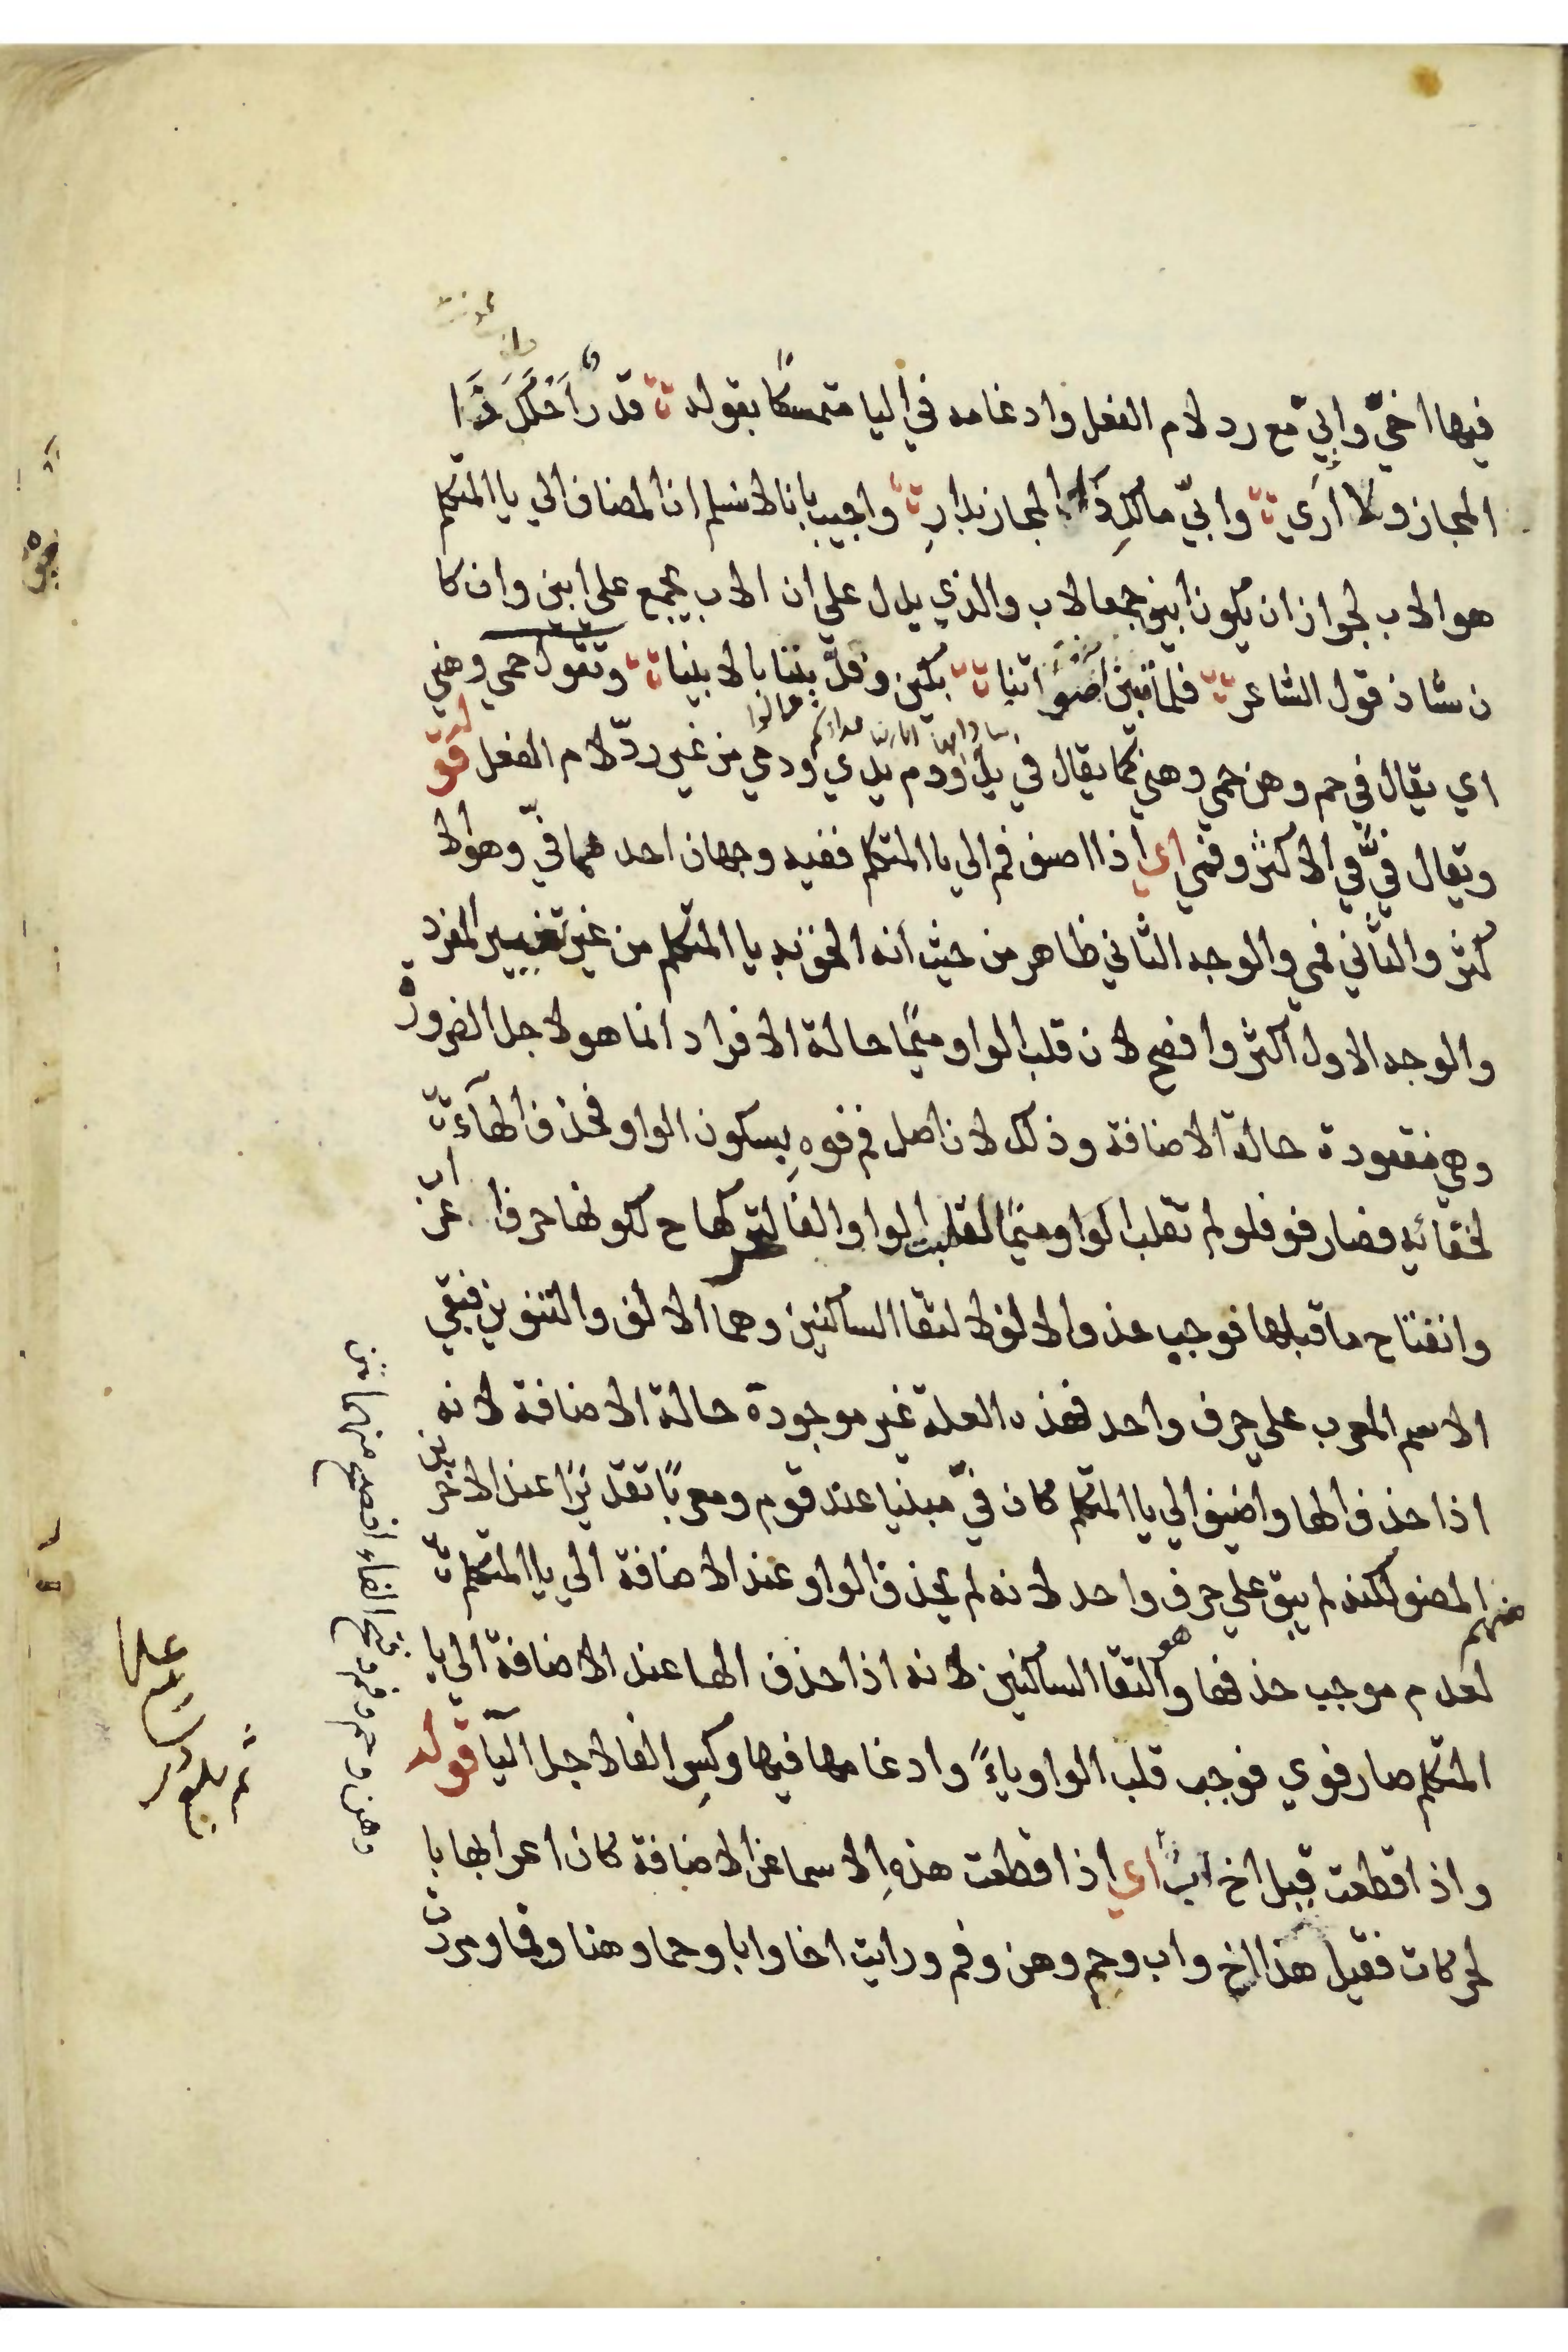 فيها اخيّ وابيّ مع رد لام الفعل وادغامه في اليا متمسكًا بقوله قدر احلّك ذا
المجاز ولا أرى وابيّ مالكِ ذا المجاز بدارِ واجيب بانا لا نسلم ان المضاف الي يا المتكلم
هو الاب لجواز ان يكون ابين جمعا لاب والذي يدل علي ان الاب يجمع علي ابين وان كا
ن شاذ قول الشاعر فلما تبين اصواتنا بكين وفدّيننا بالابينا وتقول حمي وهني
اي يقال في حم وهن حمي وهني كما يقال في يد ودم يدي ودمي من غير ردّ لام الفعل قو
له ويقال فيّ في الاكثر وفمي اي اذا اضيف فم الي يا المتكلم ففيه وجهان احدهما فيّ وهو الا
كثر والثاني فمي والوجه الثاني ظاهر من حيث انه الحق به يا المتكلم من غير تغيير المفرد
والوجه الاول اكثر وافصح لان قلب الواو ميمًا حالة الافراد انما هو لاجل الضرورة
وهي مفقودة حالة الاضافة وذلك لان اصل فم فوه بسكون الواو فحذف الهآء
لخفائه فصار فو فلو لم تقلب الواو ميمًا لقلبت الواو الفا لتحركها ح لكونها حرف اعراب
وانفتاح ما قبلها فوجب حذف الالف لالتقا الساكنين وهما الالف والتنوين فيبقي
الاسم المعرب علي حرف واحد فهذه العلة غير موجودة حالة الاضافة لانه
اذا حذف الها واضيف الي يا المتكلم كان فيّ مبنيا عند قوم ومعربًا تقديرًا عند الاخرين
منهم المصنف لكنه لم يبق علي حرف واحد لانه لم يحذف الواو عند الاضافة الي يا المتكلم
لعدم موجب حذفها وهو التقا الساكنين لانه اذا حذف الها عند الاضافة الي يا
المتكلم صار فوي فوجب قلب الواو ياءً وادغامها فيها وكسر الفا لاجل اليآ قوله
واذا قطعت قيل اخ اب اي اذا قطعت هذه الاسما عن الاضافة كان اعرابها با
لحركات فقيل هذا اخ واب وحم وهن وفم ورايت اخا وابا وحما وهنا وفما ومررت
وهن وحم وفم وفتح الفاء افصح منهما